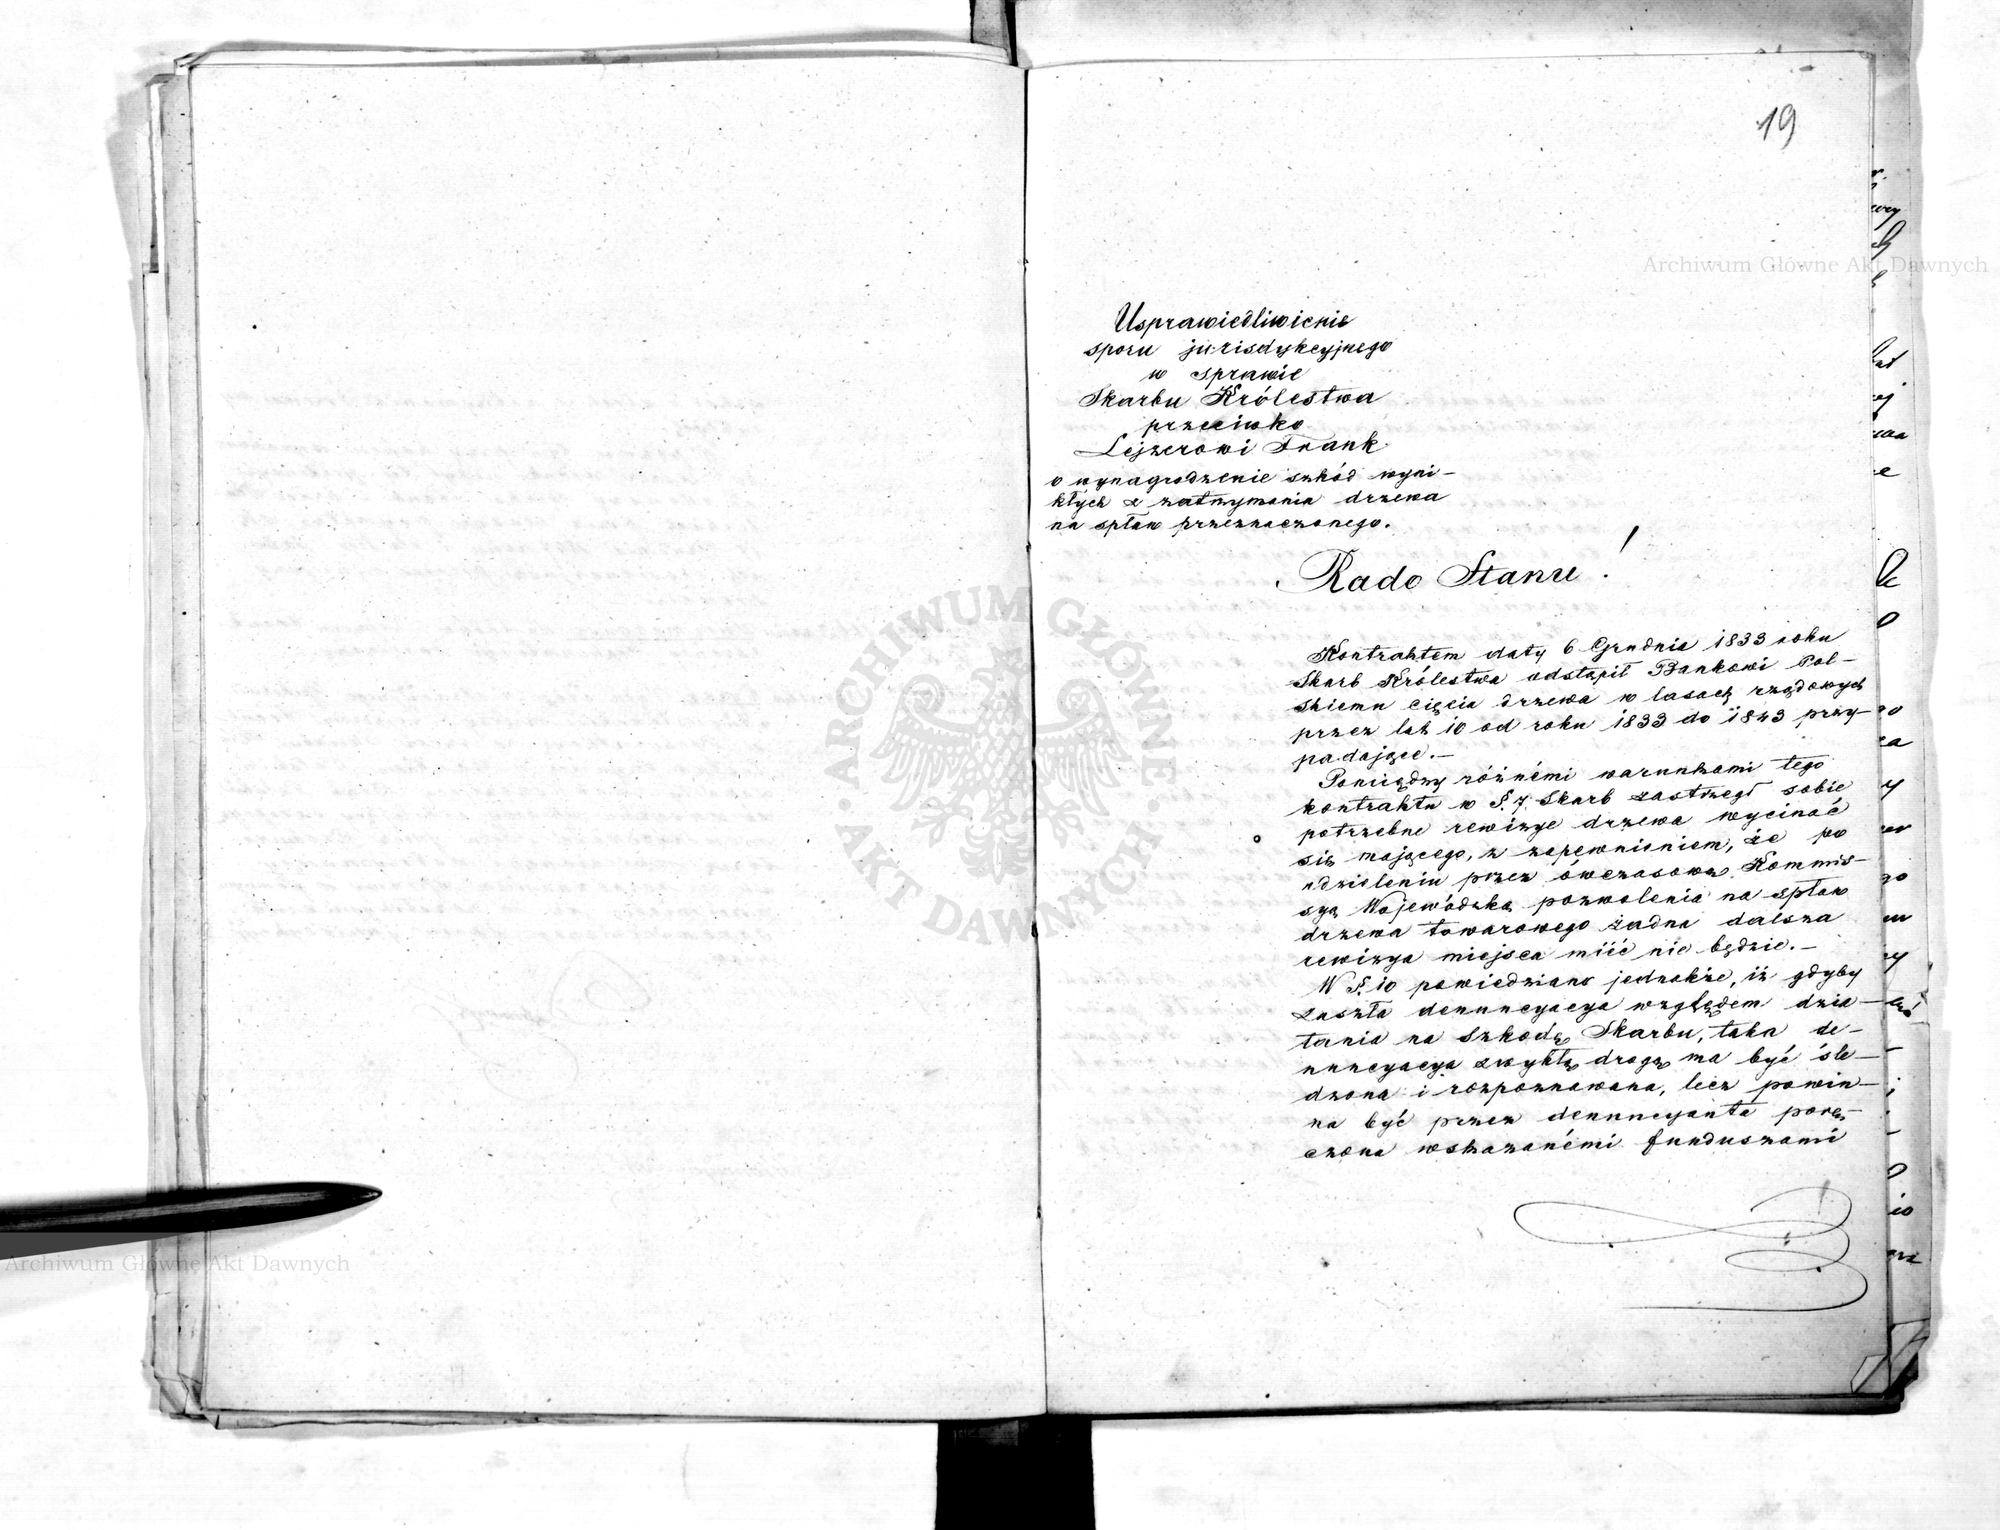 19
Archiwum Główne Akt Dawnych
Usprawiedliwienie
sporu jurisdykcyjnego
w sprawie
Skarbu Królestwa
przeciwko
Lejzerowi Frank
o wynagrodzenie szkód wyni-
kłych z zatrzymania drzewa
na spław przeznaczonego.
Rado Stanu!
Kontraktem daty 6 Grudnia 1833 roku
Skarb Królestwa odstąpił Bankowi Pol-
skiemu cięcia drzewa w lasach rządowych
przez lat 10 od roku 1833 do 1843 przy-
padające.-
Pomiędzy różnémi warunkami tego
kontraktu w §. 7. Skarb zastrzegł sobie
potrzebne rewizye drzewa wycinać
się mającego, z zapewnieniem, że po
udzieleniu przez ówczasową Kommis-
syą Wojewódzką pozwolenia na spław
drzewa towarowego żadna dalsza
rewizya miejsca mieć nie będzie.-
W §. 10 powiedziano jednakże, iż gdyby
zaszła denuncyacya względem dzia-
łania na szkodę Skarbu, taka de-
nuncyacya zwykłą drogą ma być śle-
dzona i rozpoznawana, lecz powin-
na być przez denuncyanta porę-
czona wskazanémi funduszami
ARCHIWUM GŁÓWNE
AKT DAWNYCH
Archiwum Główne Akt Dawnych